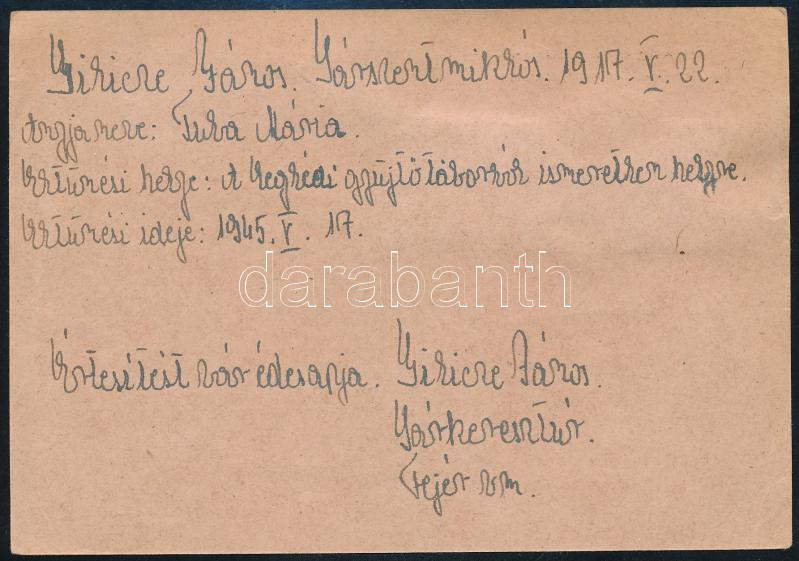 Giricze János. Sárszentmiklós. 1917. V. 22.
Anyja neve: Tuba Mária.
Eltünési helye: A Ceglédi gyüjtőtáborból ismeretlen helyre.
Eltünési ideje: 1945. V. 17.
darabanth
Értesitést vár édesapja. Giricze János.
Sárkeresztúr.
Fejér vm.